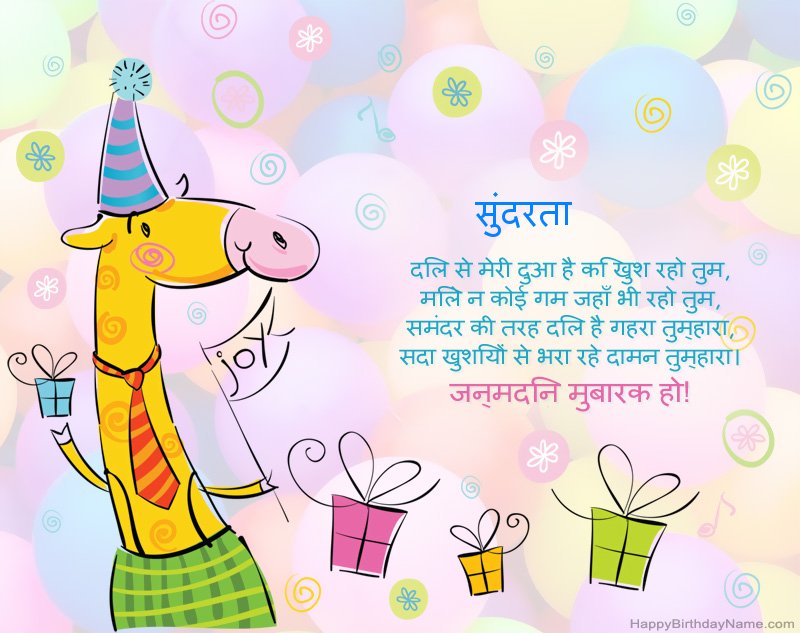 सुंदरता
दिल से मेरी दुआ है कि खुश रहो तुम,
मिले न कोई गम जहाँ भी रहो तुम,
समंदर की तरह दिल है गहरा तुम्हारा,
सदा खुशियों से भरा रहे दामन तुम्हारा।
जन्मदिन मुबारक हो!
joy
HappyBirthdayName.com